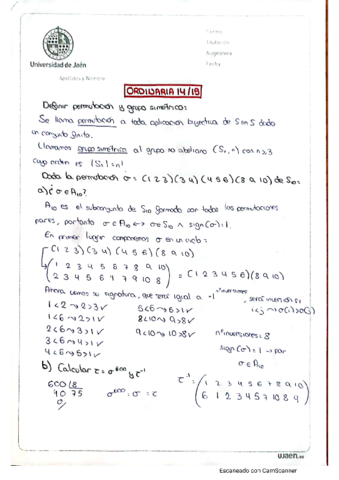 Universidad de Jaén
Apellidos y Nombre
Fecha
ORDINARIA 14/15
Definir permutación y grupo simétrico:
Se llama permutación a toda aplicación biyectiva de S en S dado
un conjunto finito.
Llamamos grupo simétrico al grupo no abeliano (Sn, ∘) con n≥3
cuyo orden es |Sn| = n!
Dada la permutación σ = (1 2 3)(3 4)(4 5 6)(8 9 10) de S10:
a) ¿σ ∈ A10?
A10 es el subconjunto de S10 formado por todas las permutaciones
pares, por tanto σ ∈ A10 ↔ σ ∈ S10 ∧ sign(σ)=1.
En primer lugar componemos σ en un ciclo:
(1 2 3)(3 4)(4 5 6)(8 9 10)
(1 2 3 4 5 6 7 8 9 10
2 3 4 5 6 1 7 9 10 8) = (1 2 3 4 5 6)(8 9 10)
Ahora vemos su signatura, que será igual a -1^nº inversiones
será inversión si
i<j → σ(i)>σ(j)
1<6 → 2>1 ✓
2<6 → 3>1 ✓
3<6 → 4>1 ✓
4<6 → 5>1 ✓
5<6 → 6>1 ✓
8<10 → 9>8 ✓
9<10 → 10>8 ✓
nº inversiones = 8
sign(σ)=1 → par
σ ∈ A10
b) Calcular τ = σ^600 y τ^-1
600 |8
40 75
0
τ^-1 = (1 2 3 4 5 6 7 8 9 10
6 1 2 3 4 5 7 10 8 9)
ujaen.es
Escaneado con CamScanner